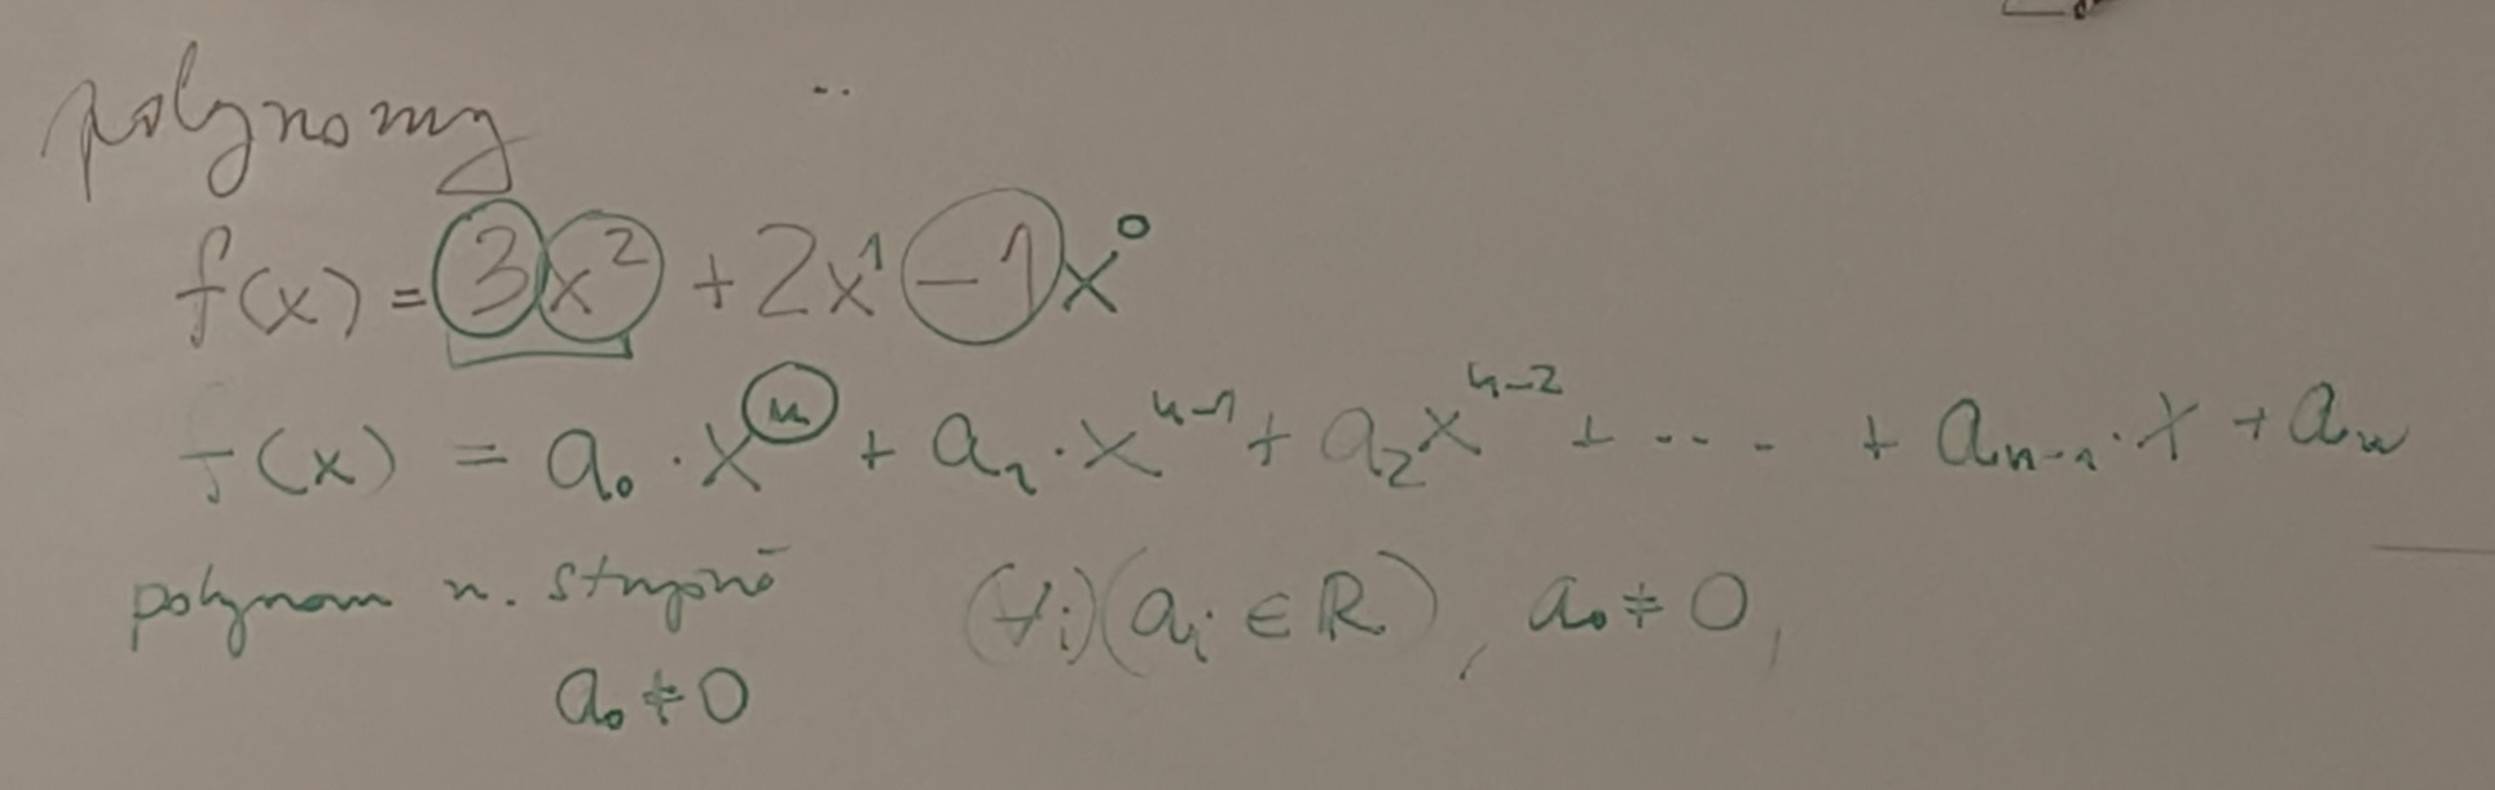 polynomy
f(x) = 3x² + 2x¹ - 1x⁰
f(x) = a₀ · xⁿ + a₁ · xⁿ⁻¹ + a₂xⁿ⁻² + .... + aₙ₋₁ · x + aₙ
polynom n. stupně (∀i)(aᵢ ∈ R), a₀ ≠ 0,
a₀ ≠ 0